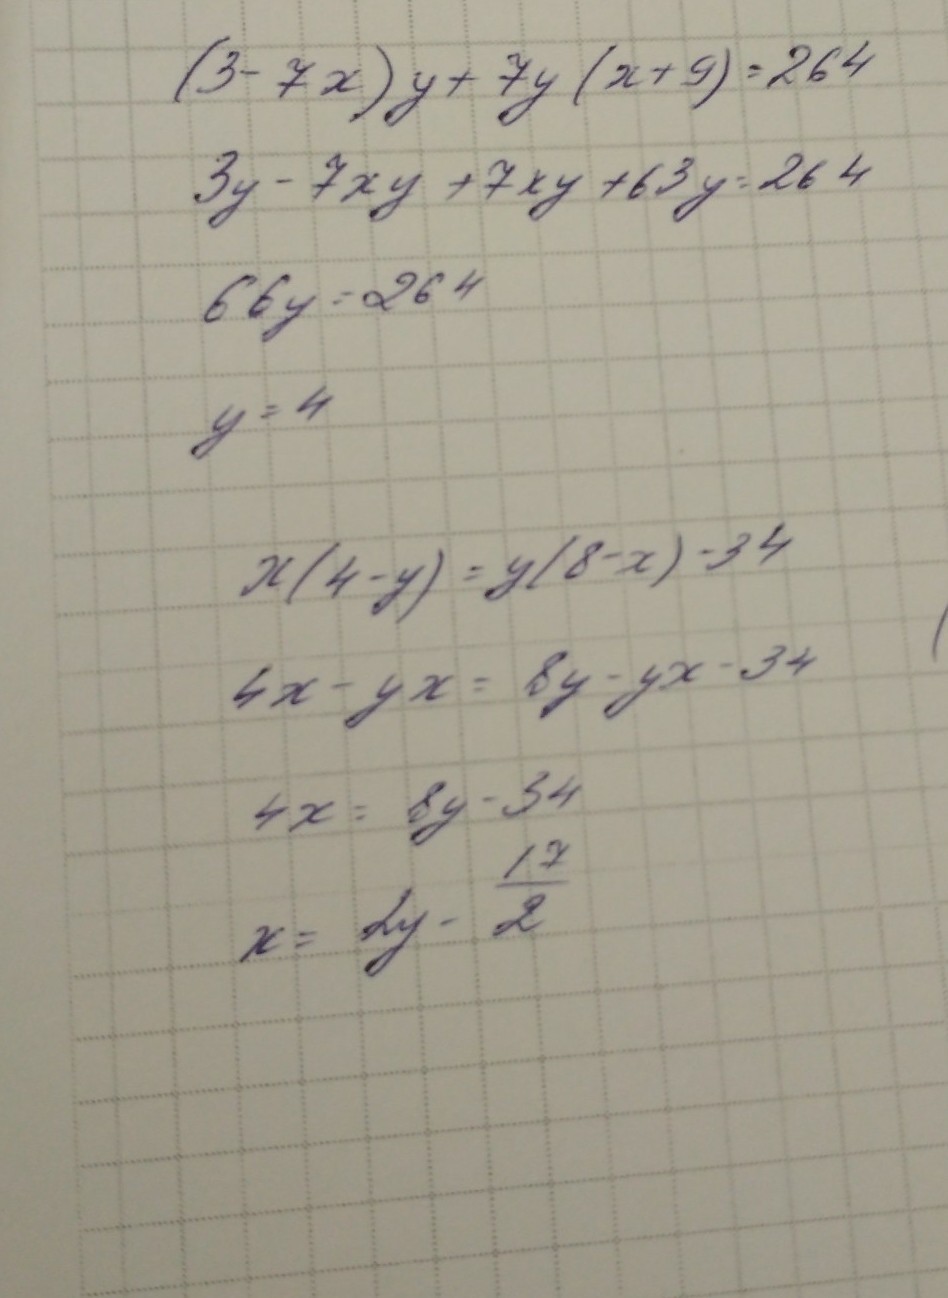 (3-7x)y+7y(x+9)=264
3y-7xy+7xy+63y=264
66y=264
y=4
x(4-y)=y(8-x)-34
4x-yx=8y-yx-34
4x=8y-34
x=2y-17/2
(